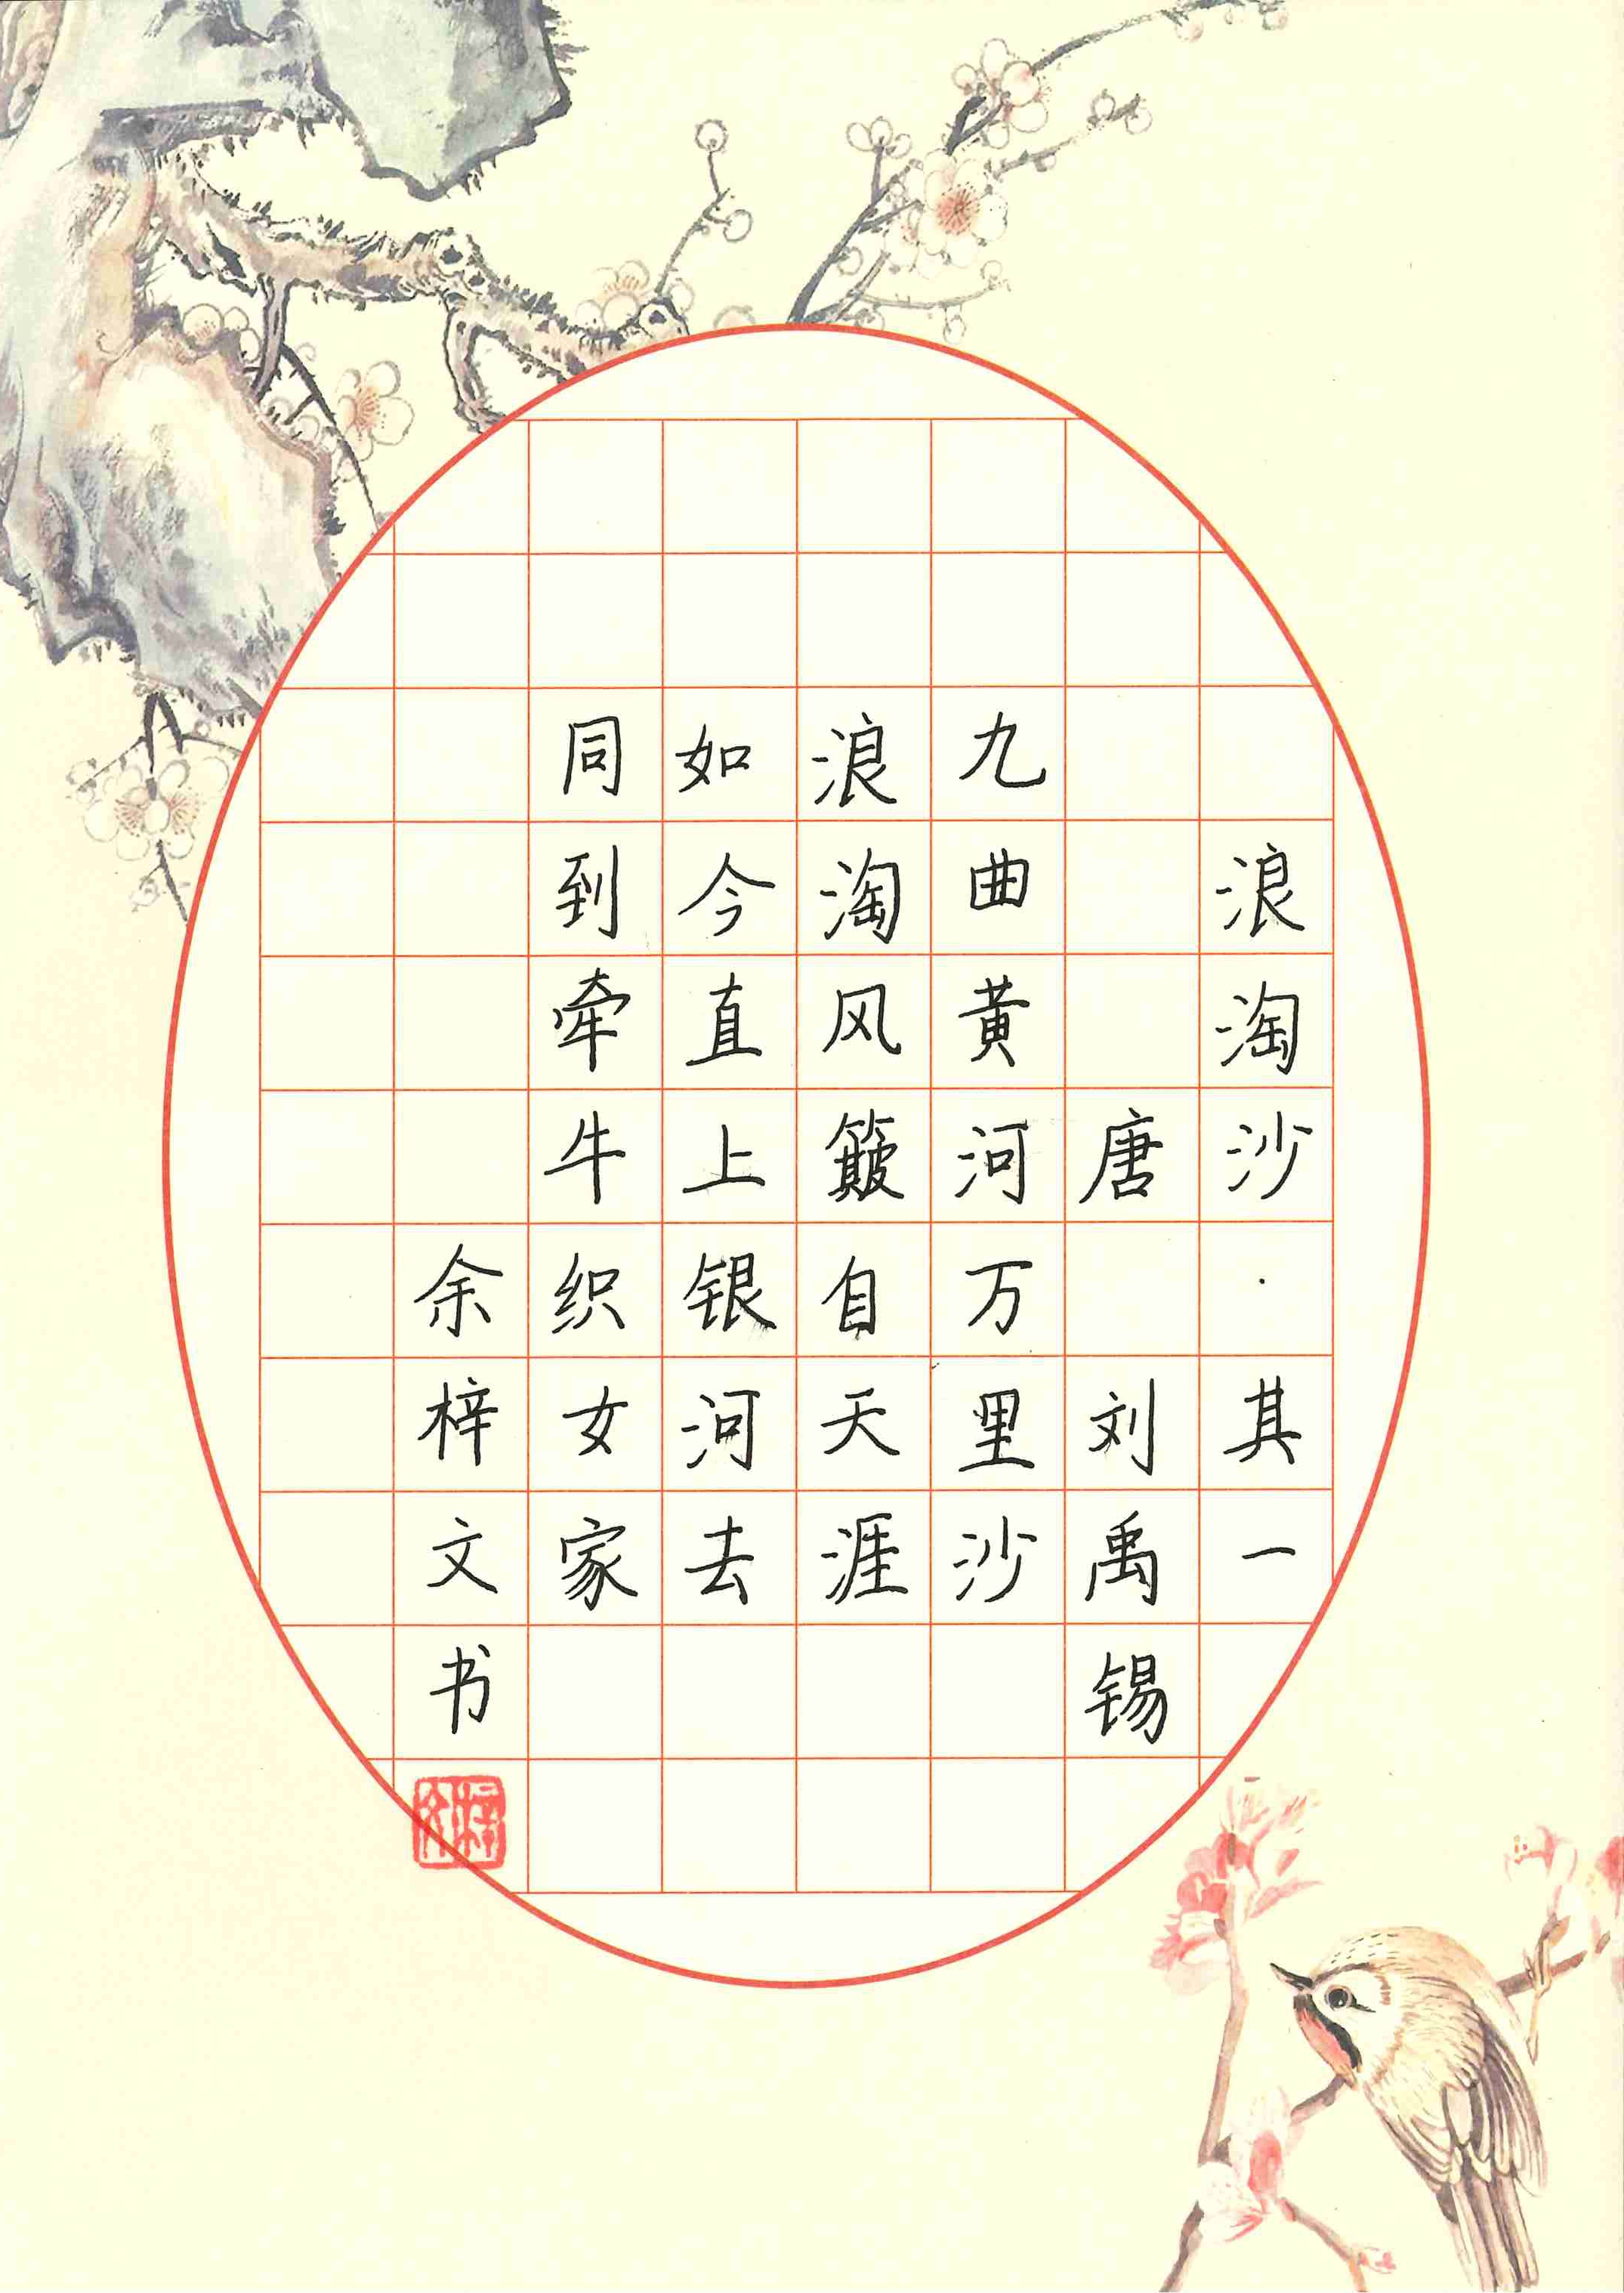 浪淘沙·其一
唐 刘禹锡
九曲黄河万里沙
浪淘风簸自天涯
如今直上银河去
同到牵牛织女家
余梓文书
梓文